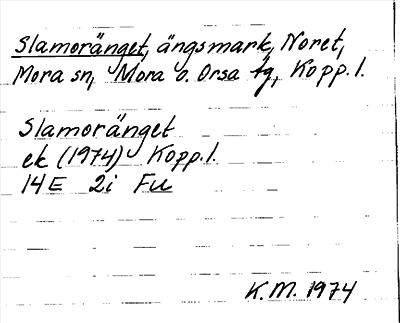 Slamoränget, ängsmark, Noret,
Mora sn, Mora o. Orsa tg, Kopp. l.
Slamoränget
ek (1974) Kopp. l.
14E 2i Fu
K. M. 1974